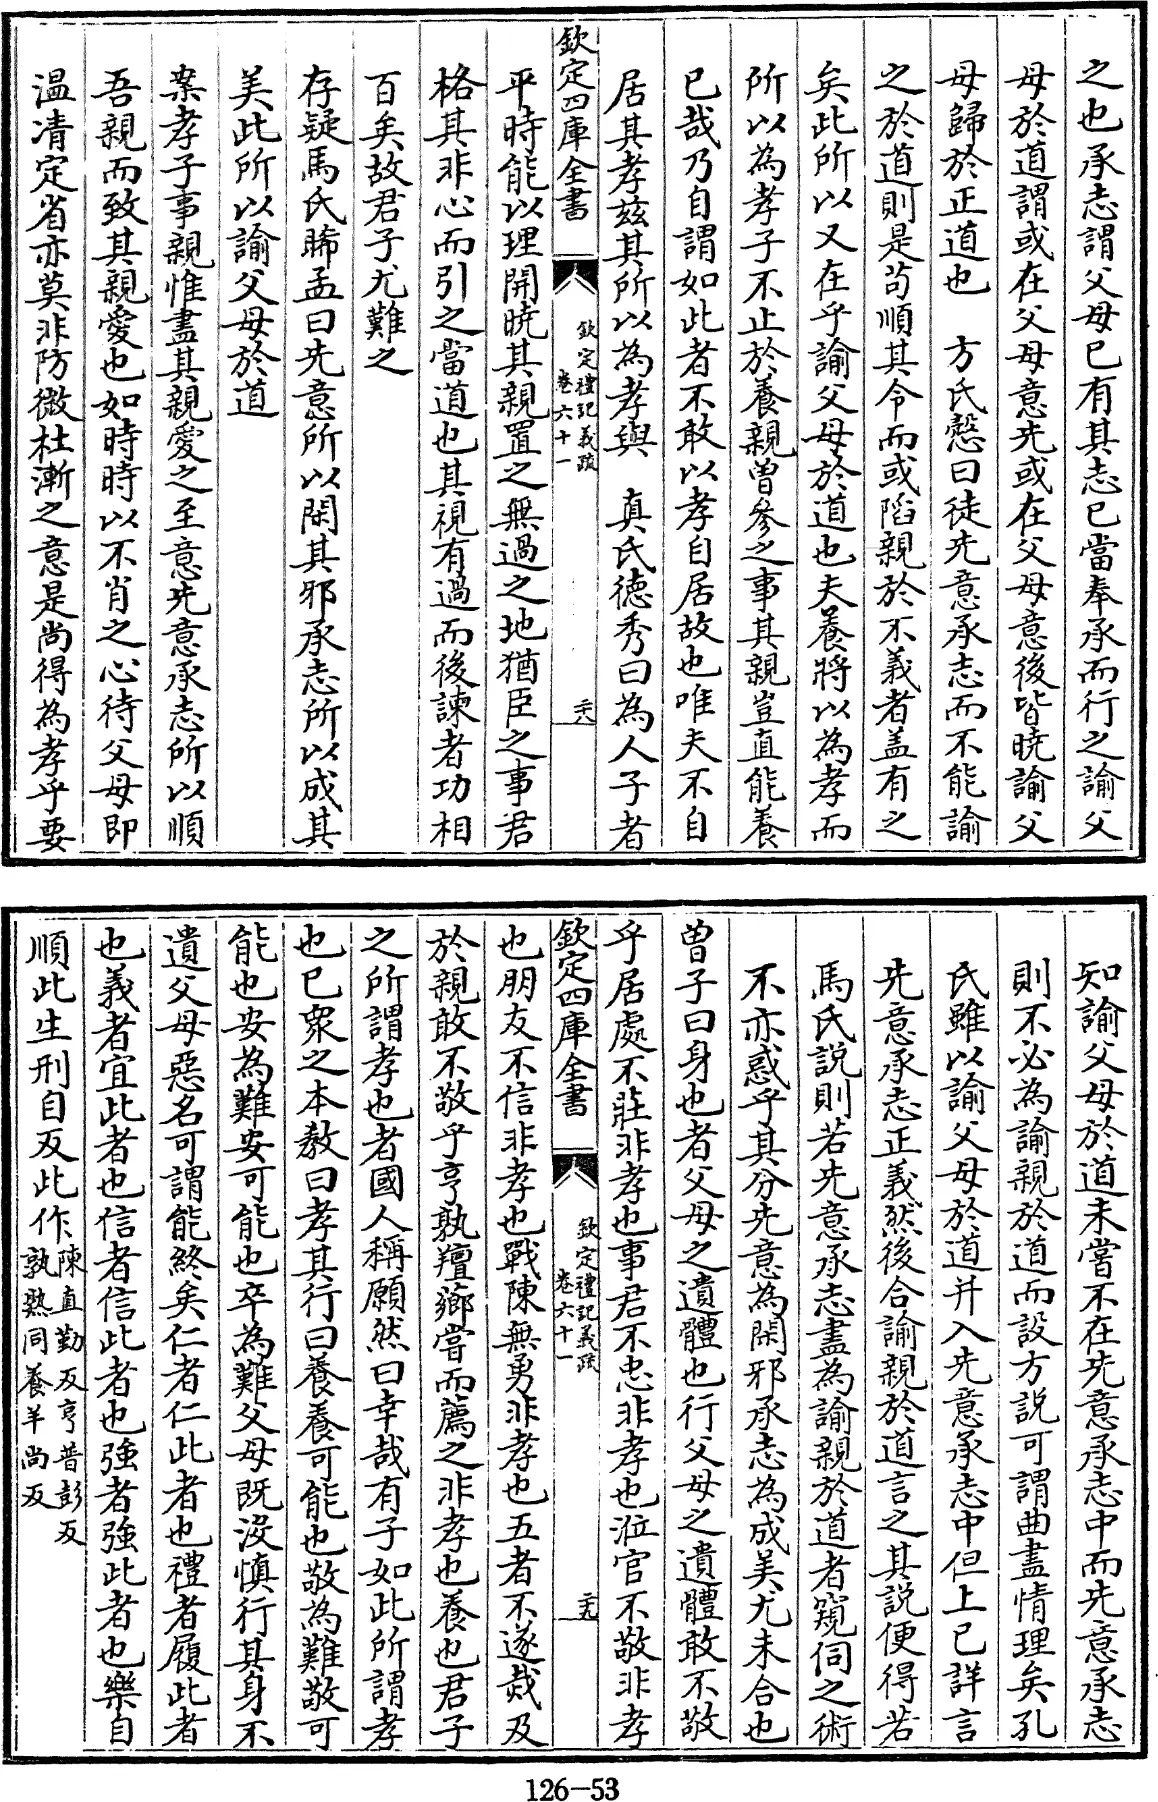 之也承志謂父母已有其志已當奉承而行之諭父
母於道謂或在父母意先或在父母意後皆曉諭父
母歸於正道也　方氏慤曰徒先意承志而不能諭
之於道則是苟順其令而或陷親於不義者盖有之
矣此所以又在乎諭父母於道也夫養將以為孝而
所以為孝子不止於養親曽參之事其親豈直能養
已哉乃自謂如此者不敢以孝自居故也唯夫不自
居其孝茲其所以為孝與　真氏德秀曰為人子者
欽定四庫全書
欽定禮記義疏
卷六十一
二十八
平時能以理開曉其親置之無過之地猶臣之事君
格其非心而引之當道也其視有過而後諫者功相
百矣故君子尤難之
存疑馬氏睎孟曰先意所以閑其邪承志所以成其
美此所以諭父母於道
案孝子事親惟盡其親愛之至意先意承志所以順
吾親而致其親愛也如時時以不肖之心待父母即
温凊定省亦莫非防微杜漸之意是尚得為孝乎要
知諭父母於道未嘗不在先意承志中而先意承志
則不必為諭親於道而設方説可謂曲盡情理矣孔
氏雖以諭父母於道并入先意承志中但上已詳言
先意承志正義然後合諭親於道言之其説便得若
馬氏説則若先意承志盡為諭親於道者窺伺之術
不亦惑乎其分先意為閑邪承志為成美尤未合也
曽子曰身也者父母之遺體也行父母之遺體敢不敬
乎居處不莊非孝也事君不忠非孝也涖官不敬非孝
欽定四庫全書
欽定禮記義疏
卷六十一
二十九
也朋友不信非孝也戰陳無勇非孝也五者不遂烖及
於親敢不敬乎亨孰羶薌嘗而薦之非孝也養也君子
之所謂孝也者國人稱願然曰幸哉有子如此所謂孝
也已衆之本教曰孝其行曰養養可能也敬為難敬可
能也安為難安可能也卒為難父母既沒慎行其身不
遺父母惡名可謂能終矣仁者仁此者也禮者履此者
也義者宜此者也信者信此者也強者強此者也樂自
順此生刑自反此作陳直勤反亨普彭反
孰熟同養羊尚反
126-53